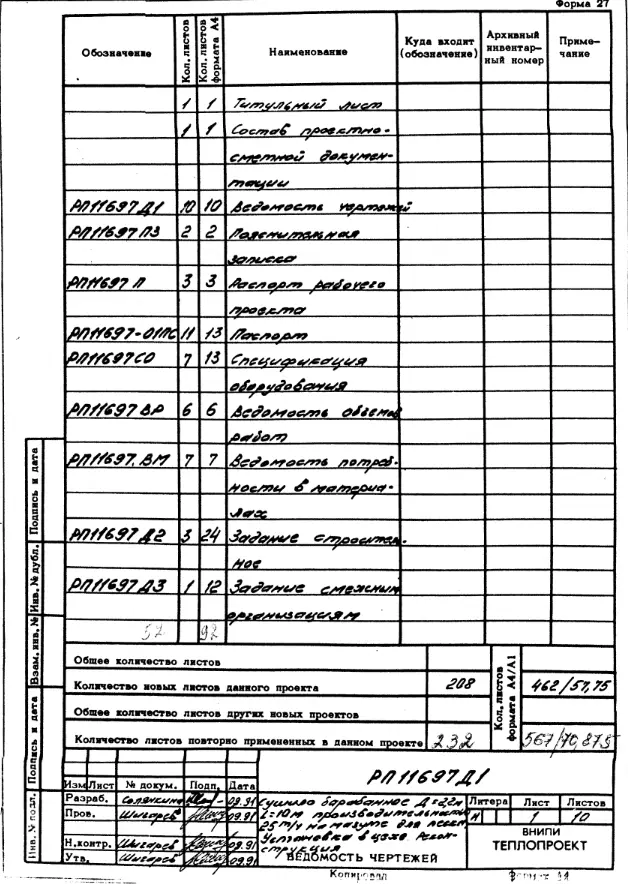 Форма 27
Обозначение Кол. листов Кол. листов формата А4 Наименование Куда входит (обозначение) Архивный инвентарный номер Примечание
1 1 Титульный лист
1 1 Состав проектно-
сметной докумен-
тации
РП11697Д1 10 10 Ведомость чертежей
РП11697 ПЗ 2 2 Пояснительная
записка
РП11697 П 3 3 Паспорт рабочего
проекта
РП11697-01ПС 11 13 Паспорт
РП11697СО 7 13 Спецификация
оборудования
РП11697 ВР 6 6 Ведомость объемов
работ
РП11697.ВМ 7 7 Ведомость потреб-
ности в материа-
лах
РП11697 Д2 3 24 Задание строитель-
ное
РП11697 Д3 1 12 Задание смежным
организациям
52 92
Общее количество листов
Количество новых листов данного проекта 208
Общее количество листов других новых проектов
Количество листов повторно примененных в данном проекте 232
Кол. листов формата А4/А1
462/57,75
567/70,875
РП11697Д1
Изм Лист № докум. Подп. Дата
Разраб. Солянкина 09.91
Пров. Шигарев 09.91
Н.контр. Шигарев 09.91
Утв. Шигарев 09.91
Сушило барабанное Д=2,2м
L=10м производительностью
25 т/ч на мазуте для песка.
Установка в цехе. Рекон-
струкция
ВЕДОМОСТЬ ЧЕРТЕЖЕЙ
Литера Лист Листов
И 1 10
ВНИПИ
ТЕПЛОПРОЕКТ
Копировал Формат А4
Подпись и дата
Инв. № дубл.
Взам. инв. №
Подпись и дата
Инв. № подл.